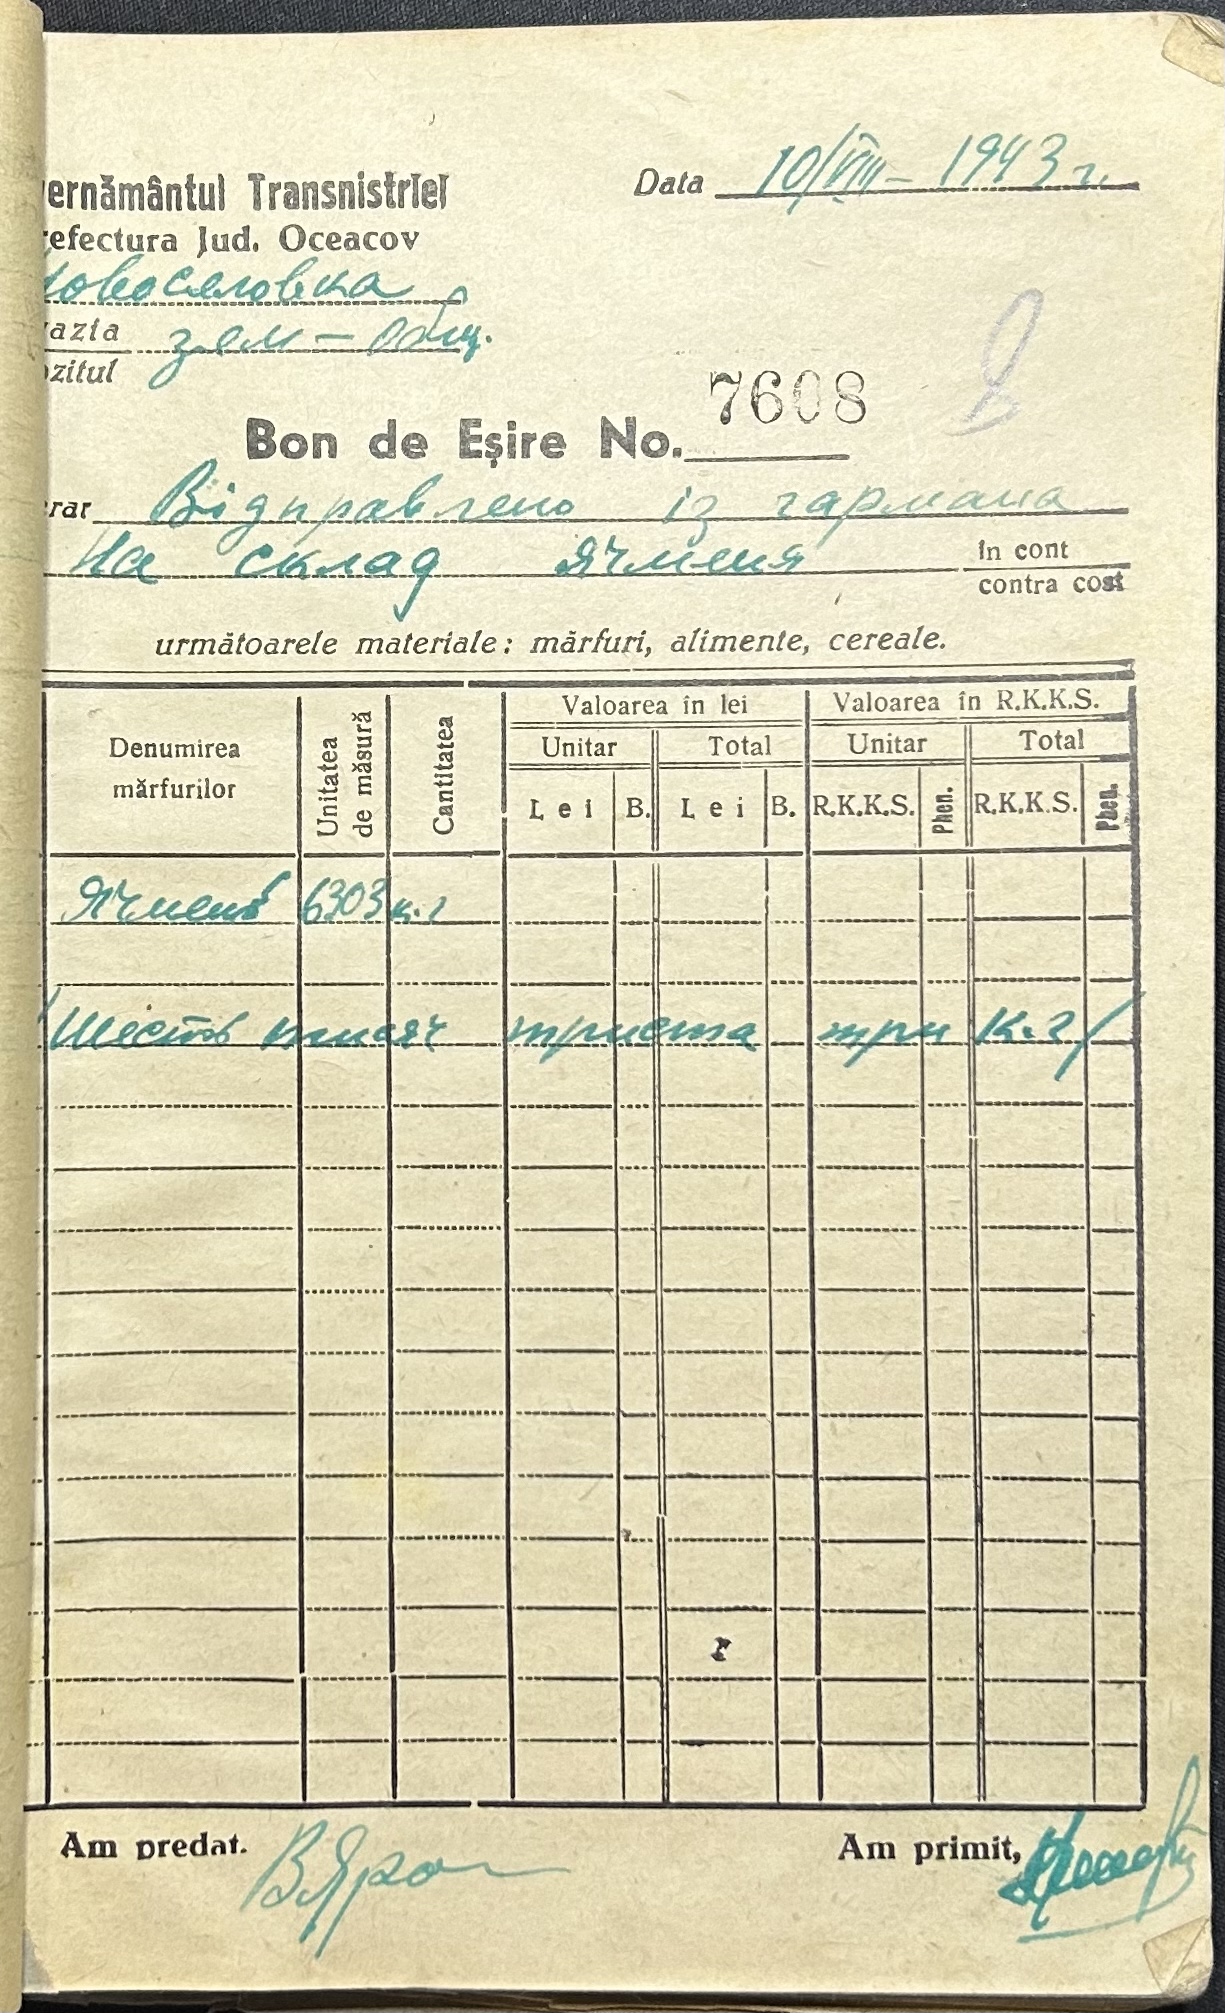 ernământul Transnistriei
Data 10/VIII – 1943 г.
efectura Jud. Oceacov
Новоселовка
azia зем – общ.
ozitul
Bon de Eșire No. 7608
rar Відправлено із гармана
На склад ячменя în cont
contra cost
următoarele materiale: mărfuri, alimente, cereale.
Denumirea mărfurilor Unitatea de măsură Cantitatea Valoarea în lei Valoarea în R.K.K.S.
Unitar Total Unitar Total
Lei B. Lei B. R.K.K.S. Phen. R.K.K.S. Phen.
Ячмень 6303 к.г
/Шесть тисяч триста три к.г/
Am predat. Am primit,